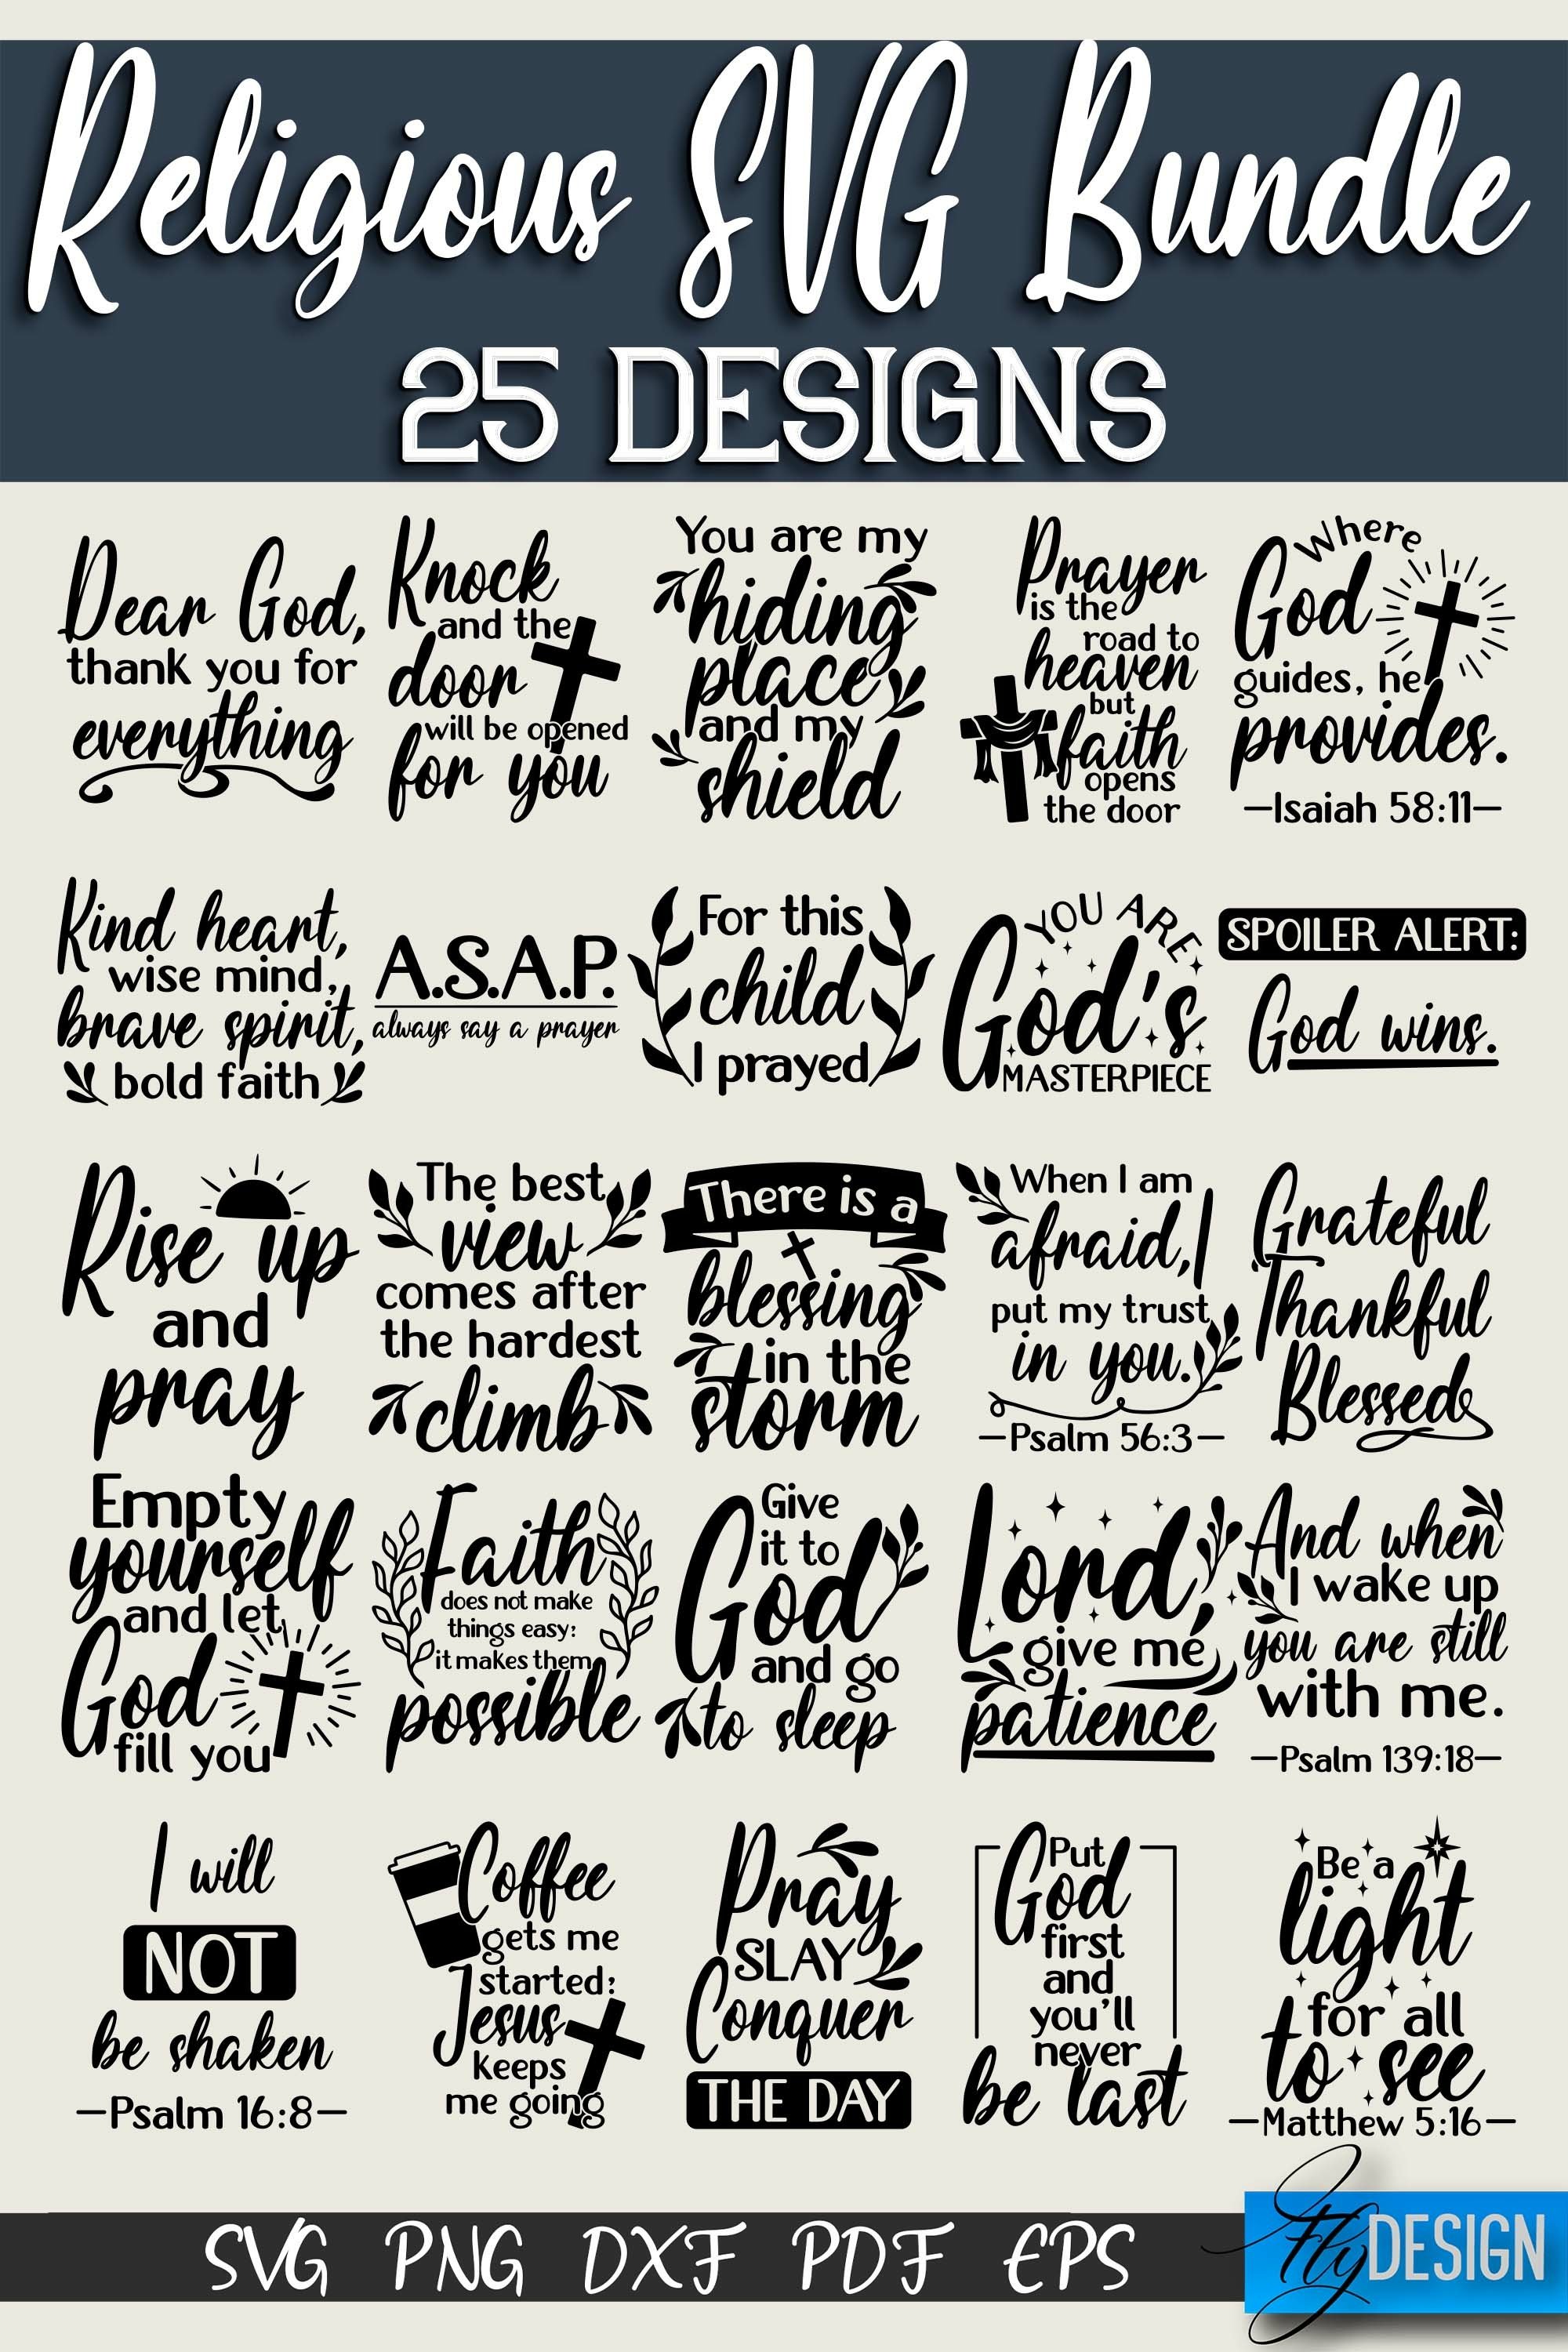 Religious SVG Bundle
25 DESIGNS
Dear God,
thank you for
everything
Knock
and the
door
will be opened
for you
You are my
hiding
place
and my
shield
Prayer
is the
road to
heaven
but
faith
opens
the door
Where
God
guides, he
provides.
—Isaiah 58:11—
Kind heart,
wise mind,
brave spirit,
bold faith
A.S.A.P.
always say a prayer
For this
child
I prayed
YOU ARE
God's
MASTERPIECE
SPOILER ALERT:
God wins.
Rise up
and
pray
The best
view
comes after
the hardest
climb
There is a
blessing
in the
storm
When I am
afraid, I
put my trust
in you.
—Psalm 56:3—
Grateful
Thankful
Blessed
Empty
yourself
and let
God
fill you
Faith
does not make
things easy:
it makes them
possible
Give
it to
God
and go
to sleep
Lord,
give me
patience
And when
I wake up
you are still
with me.
—Psalm 139:18—
I will
NOT
be shaken
—Psalm 16:8—
Coffee
gets me
started:
Jesus
keeps
me going
Pray
SLAY
Conquer
THE DAY
Put
God
first
and
you'll
never
be last
Be a
light
for all
to see
—Matthew 5:16—
SVG PNG DXF PDF EPS
Fly DESIGN